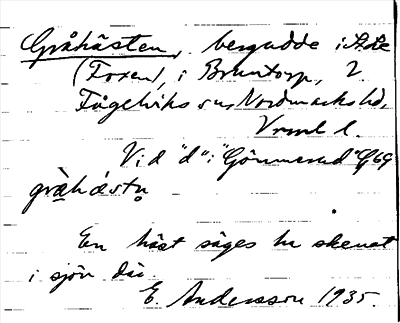 Gråhästen, bergudde i St. Le
(Foxen), i Bruntorp, 2
Fågelviks sn, Nordmarks hd,
Vrml l.
Vid "d" i "Gömmerud" G69
gràhæstn̥
En häst säges ha skenat
i sjön där.
E. Andersson 1935.